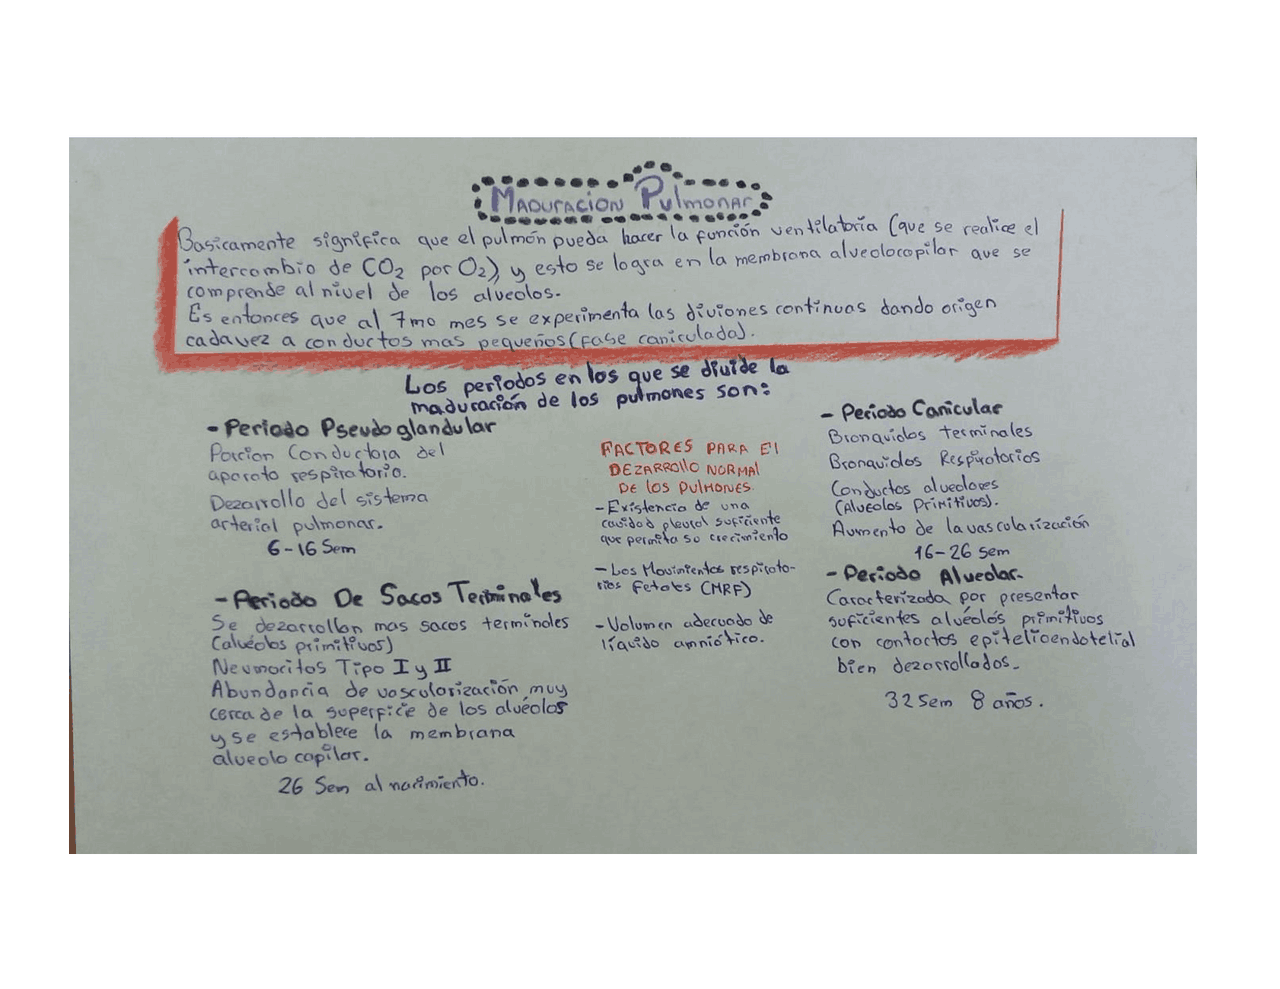 MADURACION PULMONAR
Basicamente significa que el pulmón pueda hacer la función ventilatoria (que se realice el
intercambio de CO2 por O2), y esto se logra en la membrana alveolocapilar que se
comprende al nivel de los alveolos.
Es entonces que al 7mo mes se experimenta las diviones continuas dando origen
cada vez a conductos mas pequeños (fase caniculada).
Los periodos en los que se divide la
maduración de los pulmones son:
- Periodo Pseudoglandular
Porcion Conductora del
aparato respiratorio.
Dezarrollo del sistema
arterial pulmonar.
6-16 Sem
- Periodo De Sacos Terminales
Se dezarrollan mas sacos terminales
(alvéolos primitivos)
Neumocitos Tipo I y II
Abundancia de vascularización muy
cerca de la superfice de los alvéolos
y se establece la membrana
alveolo capilar.
26 Sem al nacimiento.
FACTORES PARA El
DEZARROLLO NORMAL
DE LOS PULMONES
- Existencia de una
cavidad pleural suficiente
que permita su crecimiento
- Los Movimientos respirato-
rios Fetales (MRF)
- Volumen adecuado de
líquido amniótico.
- Periodo Canicular
Bronquiolos terminales
Bronquiolos Respiratorios
Conductos alveolares
(Alveolos Primitivos).
Aumento de la vascularización
16-26 sem
- Periodo Alveolar.
Caracterizada por presentar
suficientes alvéolos primitivos
con contactos epitelioendotelial
bien dezarrollados.
32 Sem 8 años.